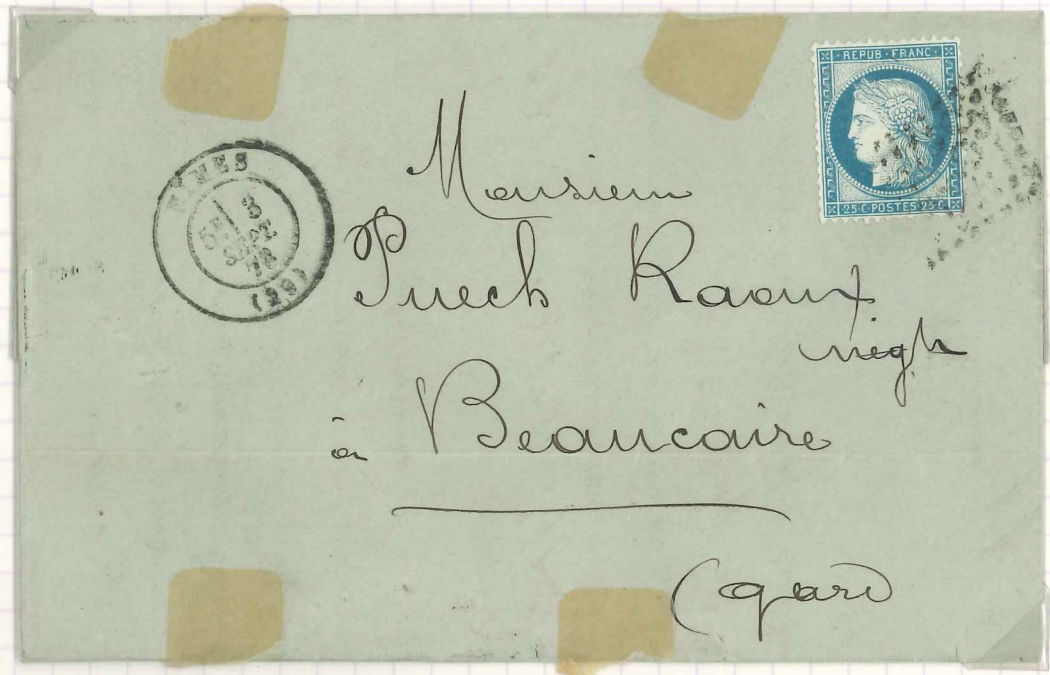 REPUB · FRANC ·
25 · C POSTES · 25 C
NIMES
5E
3
SEPT
73
(29)
Monsieur
Puech Raoux
négt
à Beaucaire
(gard